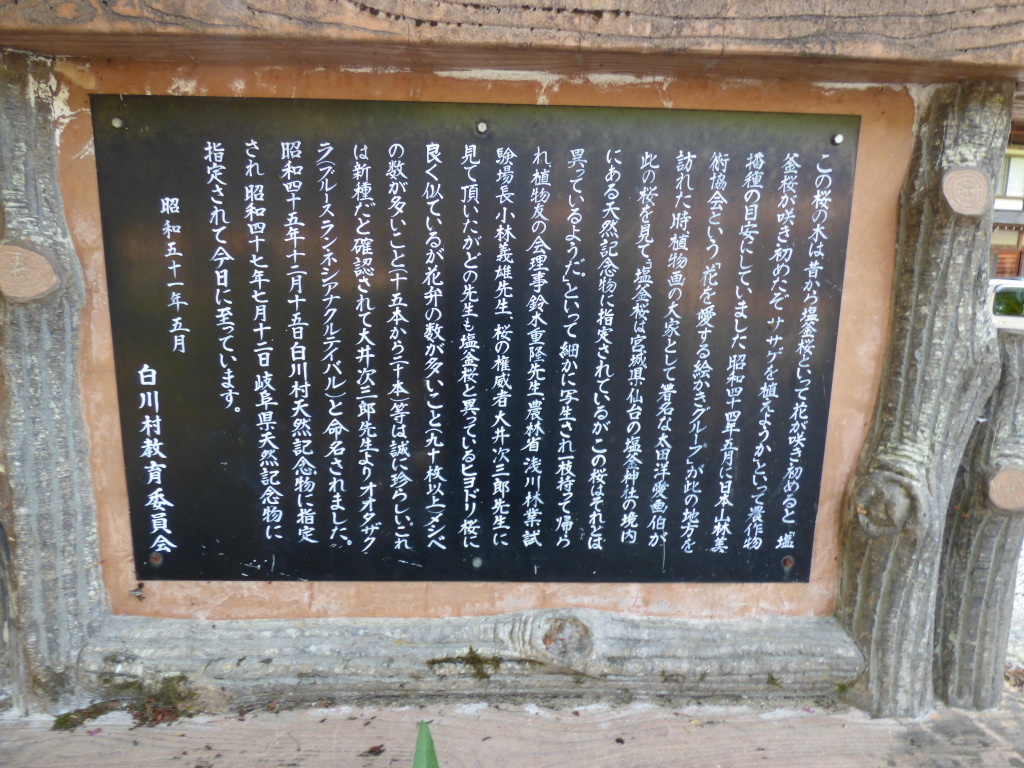 この桜の木は昔から塩釜桜といって花が咲き初めると塩
釜桜が咲き初めたぞササゲを植えようかといって農作物
播種の目安にしていました昭和四十四年五月に日本山林美
術協会という「花を愛する絵かきグループ」が此の地方を
訪れた時植物画の大家として著名な太田洋愛画伯が
此の桜を見て「塩釜桜は宮城県仙台の塩釜神社の境内
にある天然記念物に指定されているがこの桜はそれとは
異っているようだ」といって細かに写生され一枝持って帰ら
れ植物友の会理事鈴木重隆先生農林省浅川林業試
験場長小林義雄先生、桜の権威者大井次三郎先生に
見て頂いたがどの先生も塩釜桜と異っているヒヨドリ桜に
良く似ているが花弁の数が多いこと(九十枚以上)メシベ
の数が多いこと(十五本から二十本)等は誠に珍らしいこれ
は新種だと確認されて大井次三郎先生よりオオタザク
ラ(プルースランネシアナクルテイバル)と命名されました。
昭和四十五年十二月十五日白川村天然記念物に指定
され昭和四十七年七月十二日岐阜県天然記念物に
指定されて今日に至っています。
昭和五十一年五月
白川村教育委員会